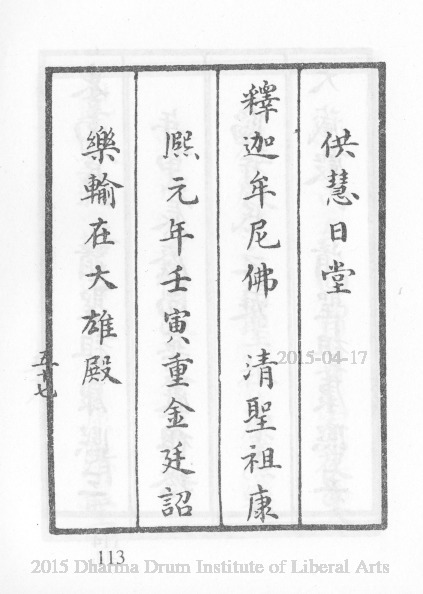 供慧日堂
釋迦牟尼佛　清聖祖康
熙元年壬寅重金廷詔
樂輸在大雄殿
五十七
113
2015-04-17
2015 Dharma Drum Institute of Liberal Arts